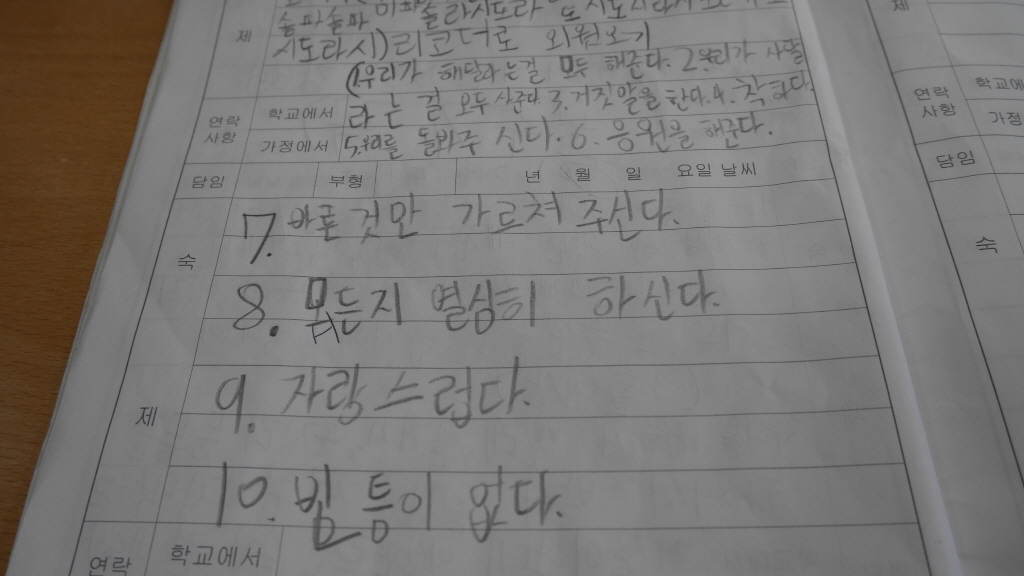 제
솔파솔파 미파솔라시도라
시도라시)리코더로 외워오기
(우리가 해달라는걸 모두 해준다. 2.우리가 사달
연락사항 학교에서 라는 걸 모두 사준다. 3.거짓말을 한다. 4. 착하다.
가정에서 5.우리를 돌봐주신다. 6. 응원을 해준다.
담임 부형 년 월 일 요일 날씨
숙
7. 바른것만 가르쳐 주신다.
8. 뭐든지 열심히 하신다.
제
9. 자랑스럽다.
10. 빔틈이 없다.
연락 학교에서
제
연락사항 학교에
가정
담임
숙